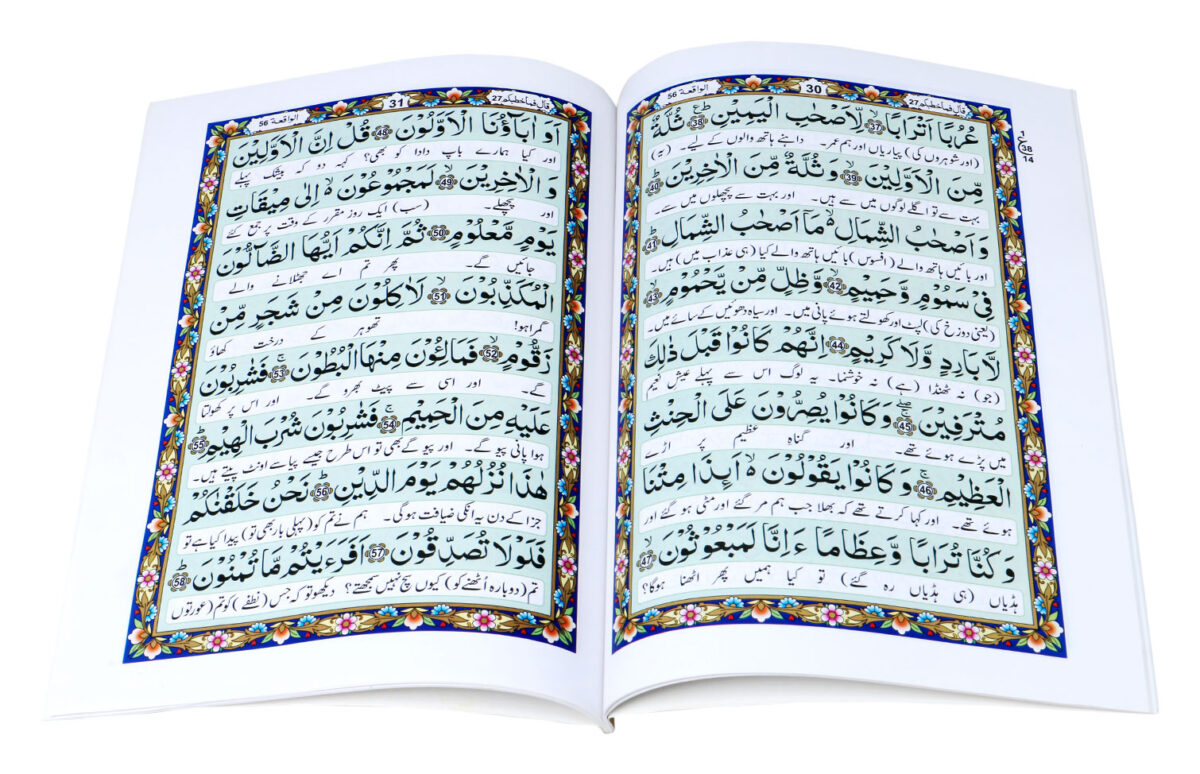 قال فماخطبكم 27
30
الواقعة 56
عُرُبًا اَتْرَابًا ۙ ﴿37﴾ لِّاَصْحٰبِ الْيَمِيْنِ ؕ ﴿38﴾ ثُلَّةٌ
(اور شوہروں کی) پیاریاں اور ہم عمر۔ داہنے ہاتھ والوں کے لیے۔ (یہ)
1
38
14
مِّنَ الْاَوَّلِيْنَ ۙ ﴿39﴾ وَثُلَّةٌ مِّنَ الْاٰخِرِيْنَ ؕ ﴿40﴾
بہت سے تو اگلے لوگوں میں سے ہیں۔ اور بہت سے پچھلوں میں سے۔
وَاَصْحٰبُ الشِّمَالِ ۙ مَاۤ اَصْحٰبُ الشِّمَالِ ؕ ﴿41﴾
اور بائیں ہاتھ والے (افسوس) بائیں ہاتھ والے کیا (ہی عذاب میں) ہیں۔
فِيْ سَمُوْمٍ وَّحَمِيْمٍ ۙ ﴿42﴾ وَّظِلٍّ مِّنْ يَّحْمُوْمٍ ۙ ﴿43﴾
(یعنی دوزخ کی) لپٹ اور کھولتے ہوئے پانی میں۔ اور سیاہ دھوئیں کے سائے میں۔
لَّا بَارِدٍ وَّلَا كَرِيْمٍ ﴿44﴾ اِنَّهُمْ كَانُوْا قَبْلَ ذٰلِكَ
(جو) نہ ٹھنڈا (ہے) نہ خوشنما۔ یہ لوگ اس سے پہلے عیش نعیم
مُتْرَفِيْنَ ۚۖ ﴿45﴾ وَكَانُوْا يُصِرُّوْنَ عَلَى الْحِنْثِ
میں پڑے ہوئے تھے۔ اور گناہ عظیم پر اڑے
الْعَظِيْمِ ۚ ﴿46﴾ وَكَانُوْا يَقُوْلُوْنَ ۙ اَىِٕذَا مِتْنَا
ہوئے تھے۔ اور کہا کرتے تھے کہ بھلا جب ہم مر گئے اور مٹی ہو گئے اور
وَكُنَّا تُرَابًا وَّعِظَامًا ءَاِنَّا لَمَبْعُوْثُوْنَ ۙ ﴿47﴾
ہڈیاں (ہی ہڈیاں رہ گئے) تو کیا ہمیں پھر اٹھنا ہوگا؟
قال فماخطبكم 27
31
الواقعة 56
اَوَ اٰبَآؤُنَا الْاَوَّلُوْنَ ﴿48﴾ قُلْ اِنَّ الْاَوَّلِيْنَ
اور کیا ہمارے باپ دادا کو بھی؟ کہہ دو کہ بیشک پہلے
وَالْاٰخِرِيْنَ ۙ ﴿49﴾ لَمَجْمُوْعُوْنَ ۙ اِلٰى مِيْقَاتِ
اور پچھلے۔ (سب) ایک روز مقرر کے وقت پر جمع کئے
يَوْمٍ مَّعْلُوْمٍ ﴿50﴾ ثُمَّ اِنَّكُمْ اَيُّهَا الضَّآلُّوْنَ
جائیں گے۔ پھر تم اے جھٹلانے والے
الْمُكَذِّبُوْنَ ۙ ﴿51﴾ لَاٰكِلُوْنَ مِنْ شَجَرٍ مِّنْ
گمراہو! تھوہر کے درخت کھاؤ
زَقُّوْمٍ ۙ ﴿52﴾ فَمَالِـُٔوْنَ مِنْهَا الْبُطُوْنَ ۚ ﴿53﴾ فَشٰرِبُوْنَ
گے۔ اور اسی سے پیٹ بھرو گے۔ اور اس پر کھولتا
عَلَيْهِ مِنَ الْحَمِيْمِ ۚ ﴿54﴾ فَشٰرِبُوْنَ شُرْبَ الْهِيْمِ ؕ ﴿55﴾
ہوا پانی پیو گے۔ اور پیو گے بھی تو اس طرح جیسے پیاسے اونٹ پیتے ہیں۔
هٰذَا نُزُلُهُمْ يَوْمَ الدِّيْنِ ؕ ﴿56﴾ نَحْنُ خَلَقْنٰكُمْ
جزا کے دن یہ انکی ضیافت ہوگی۔ ہم نے تم کو (پہلی بار بھی تو) پیدا کیا ہے تو
فَلَوْلَا تُصَدِّقُوْنَ ﴿57﴾ اَفَرَءَيْتُمْ مَّا تُمْنُوْنَ ؕ ﴿58﴾
تم (دوبارہ اُٹھنے کو) کیوں سچ نہیں سمجھتے؟ دیکھو تو کہ جس (نطفے) کو تم (عورتوں